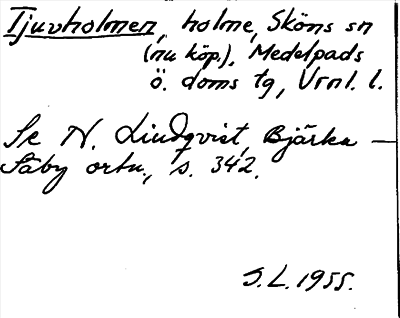 Tjuvholmen, holme, Sköns sn
(nu köp.), Medelpads
ö. doms tg, Vrnl. l.
Se N. Lindqvist, Bjärka –
Säby ortn., s. 342.
S.L. 1955.